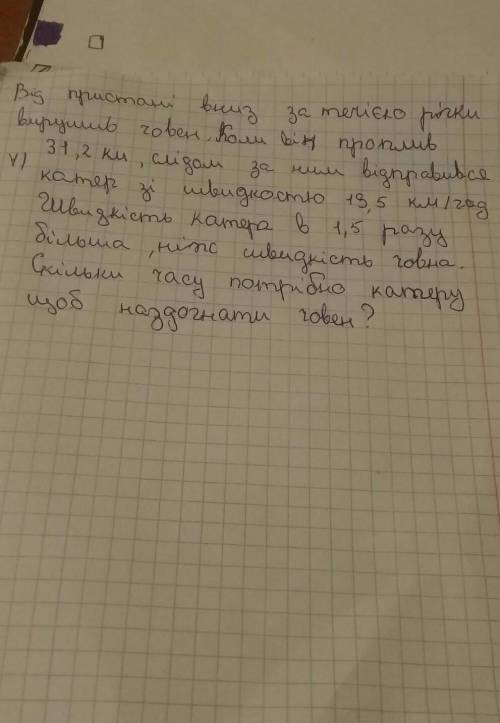 Від пристані вниз за течією річки
вирушив човен. Коли він проплив
4) 31,2 км, слідом за ним відправився
катер зі швидкостю 19,5 км/год
Швидкість катера в 1,5 разу
більша, ніж швидкість човна.
Скільки часу потрібно катеру
щоб наздогнати човен?